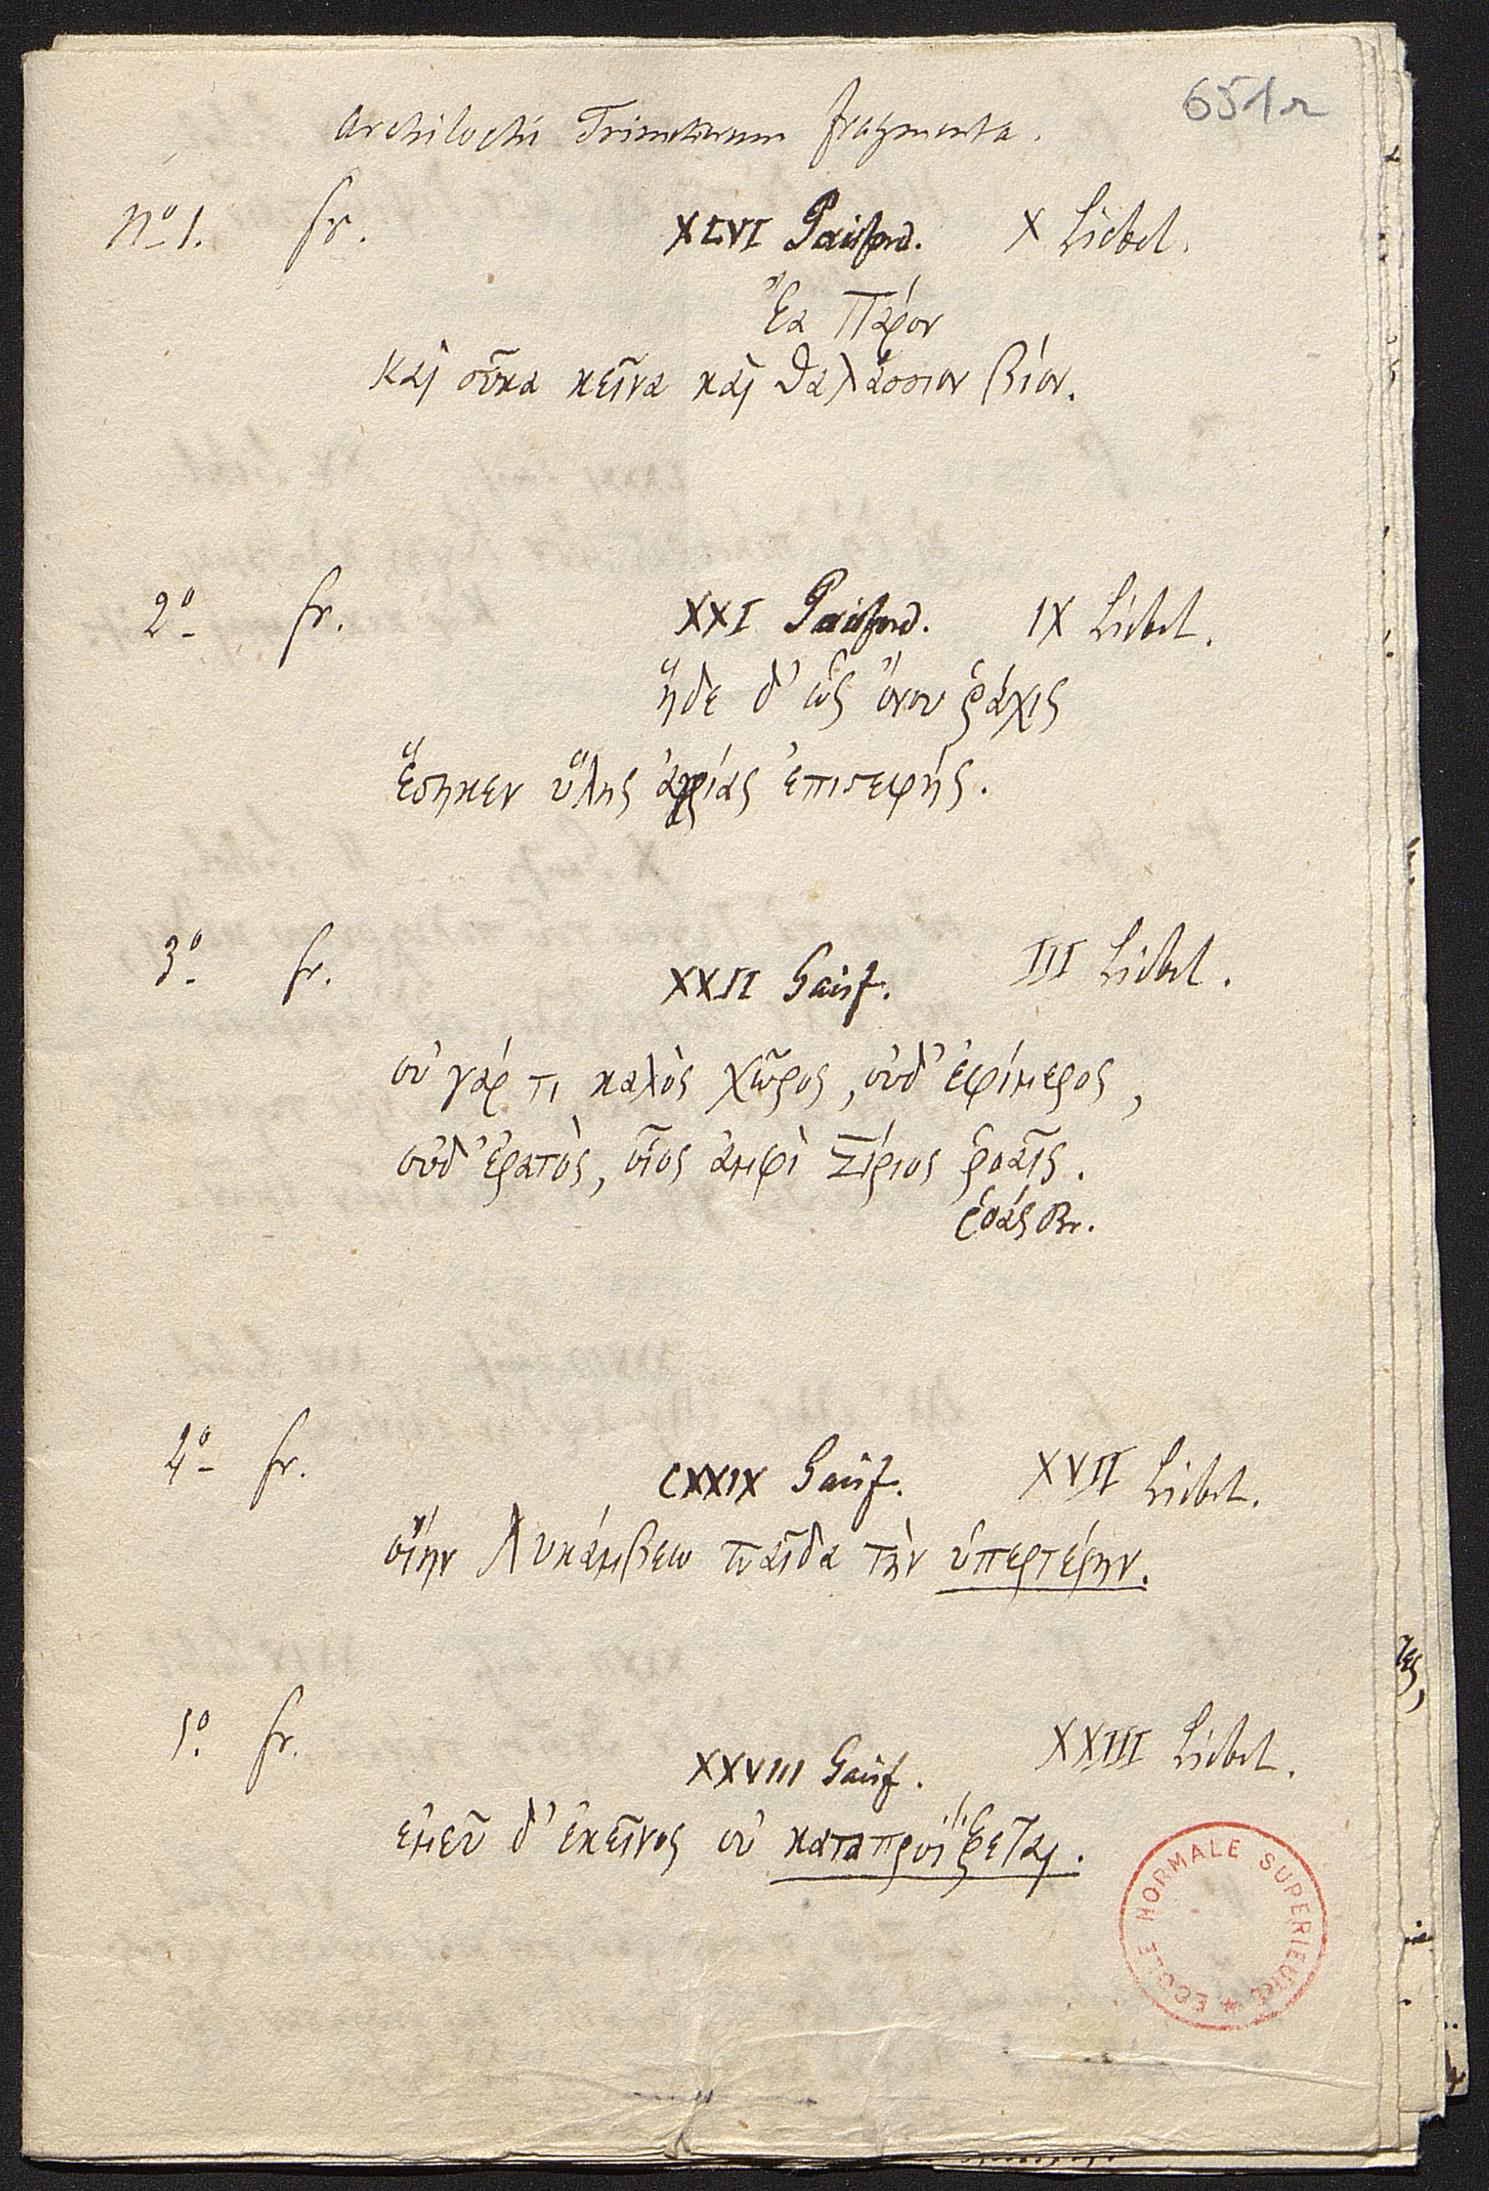 651r
Archilochi Trimetrorum fragmenta.
No 1. fr. XLVI Gaisford. X Liebel.
Ἔα Πάρον
καὶ σῦκα κεῖνα καὶ θαλάσσιον βίον.
2o fr. XXI Gaisford. IX Liebel.
ἥδε δ' ὡς ὄνου ῥάχις
ἕστηκεν ὕλης ἀγρίας ἐπιστεφής.
3o fr. XXII Gaisf. III Liebel.
οὐ γάρ τι καλὸς χῶρος, οὐδ' ἐφίμερος,
οὐδ' ἐρατὸς, οἷος ἀμφὶ Σίριος ῥοαῖς.
ῥοάς Br.
4o fr. CXXIX Gaisf. XVII Liebel.
οἵην Λυκάμβεω παῖδα τὴν ὑπερτέρην.
5o fr. XXVIII Gaisf. XXIII Liebel.
ἐμεῦ δ' ἐκεῖνος οὐ καταπροΐξεται.
ECOLE NORMALE SUPERIEURE